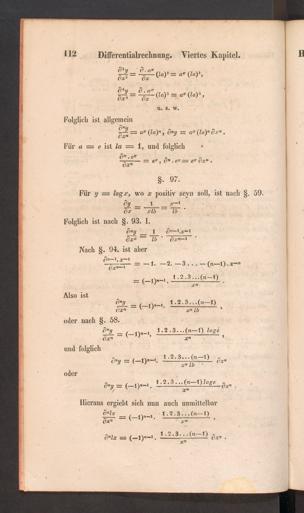 112 Differentialrechnung. Viertes Kapitel.
∂³y/∂x³ = ∂.aˣ/∂x (la)² = aˣ (la)³,
∂⁴y/∂x⁴ = ∂.aˣ/∂x (la)³ = aˣ (la)⁴,
u. s. w.
Folglich ist allgemein
∂ⁿy/∂xⁿ = aˣ (la)ⁿ, ∂ⁿy = aˣ (la)ⁿ ∂xⁿ.
Für a = e ist la = 1, und folglich
∂ⁿ.eˣ/∂xⁿ = eˣ, ∂ⁿ.eˣ = eˣ ∂xⁿ.
§. 97.
Für y = log x, wo x positiv seyn soll, ist nach §. 59.
∂y/∂x = 1/xlb = x⁻¹/lb.
Folglich ist nach §. 93. I.
∂ⁿy/∂xⁿ = 1/lb . ∂ⁿ⁻¹.x⁻¹/∂xⁿ⁻¹.
Nach §. 94. ist aber
∂ⁿ⁻¹.x⁻¹/∂xⁿ⁻¹ = −1. −2. −3 ... −(n−1).x⁻ⁿ
= (−1)ⁿ⁻¹. 1.2.3...(n−1)/xⁿ.
Also ist
∂ⁿy/∂xⁿ = (−1)ⁿ⁻¹. 1.2.3...(n−1)/xⁿ lb,
oder nach §. 58.
∂ⁿy/∂xⁿ = (−1)ⁿ⁻¹. 1.2.3...(n−1) log e/xⁿ,
und folglich
∂ⁿy = (−1)ⁿ⁻¹. 1.2.3...(n−1)/xⁿ lb ∂xⁿ
oder
∂ⁿy = (−1)ⁿ⁻¹. 1.2.3...(n−1) log e/xⁿ ∂xⁿ.
Hieraus ergiebt sich nun auch unmittelbar
∂ⁿlx/∂xⁿ = (−1)ⁿ⁻¹. 1.2.3...(n−1)/xⁿ,
∂ⁿlx = (−1)ⁿ⁻¹. 1.2.3...(n−1)/xⁿ ∂xⁿ.